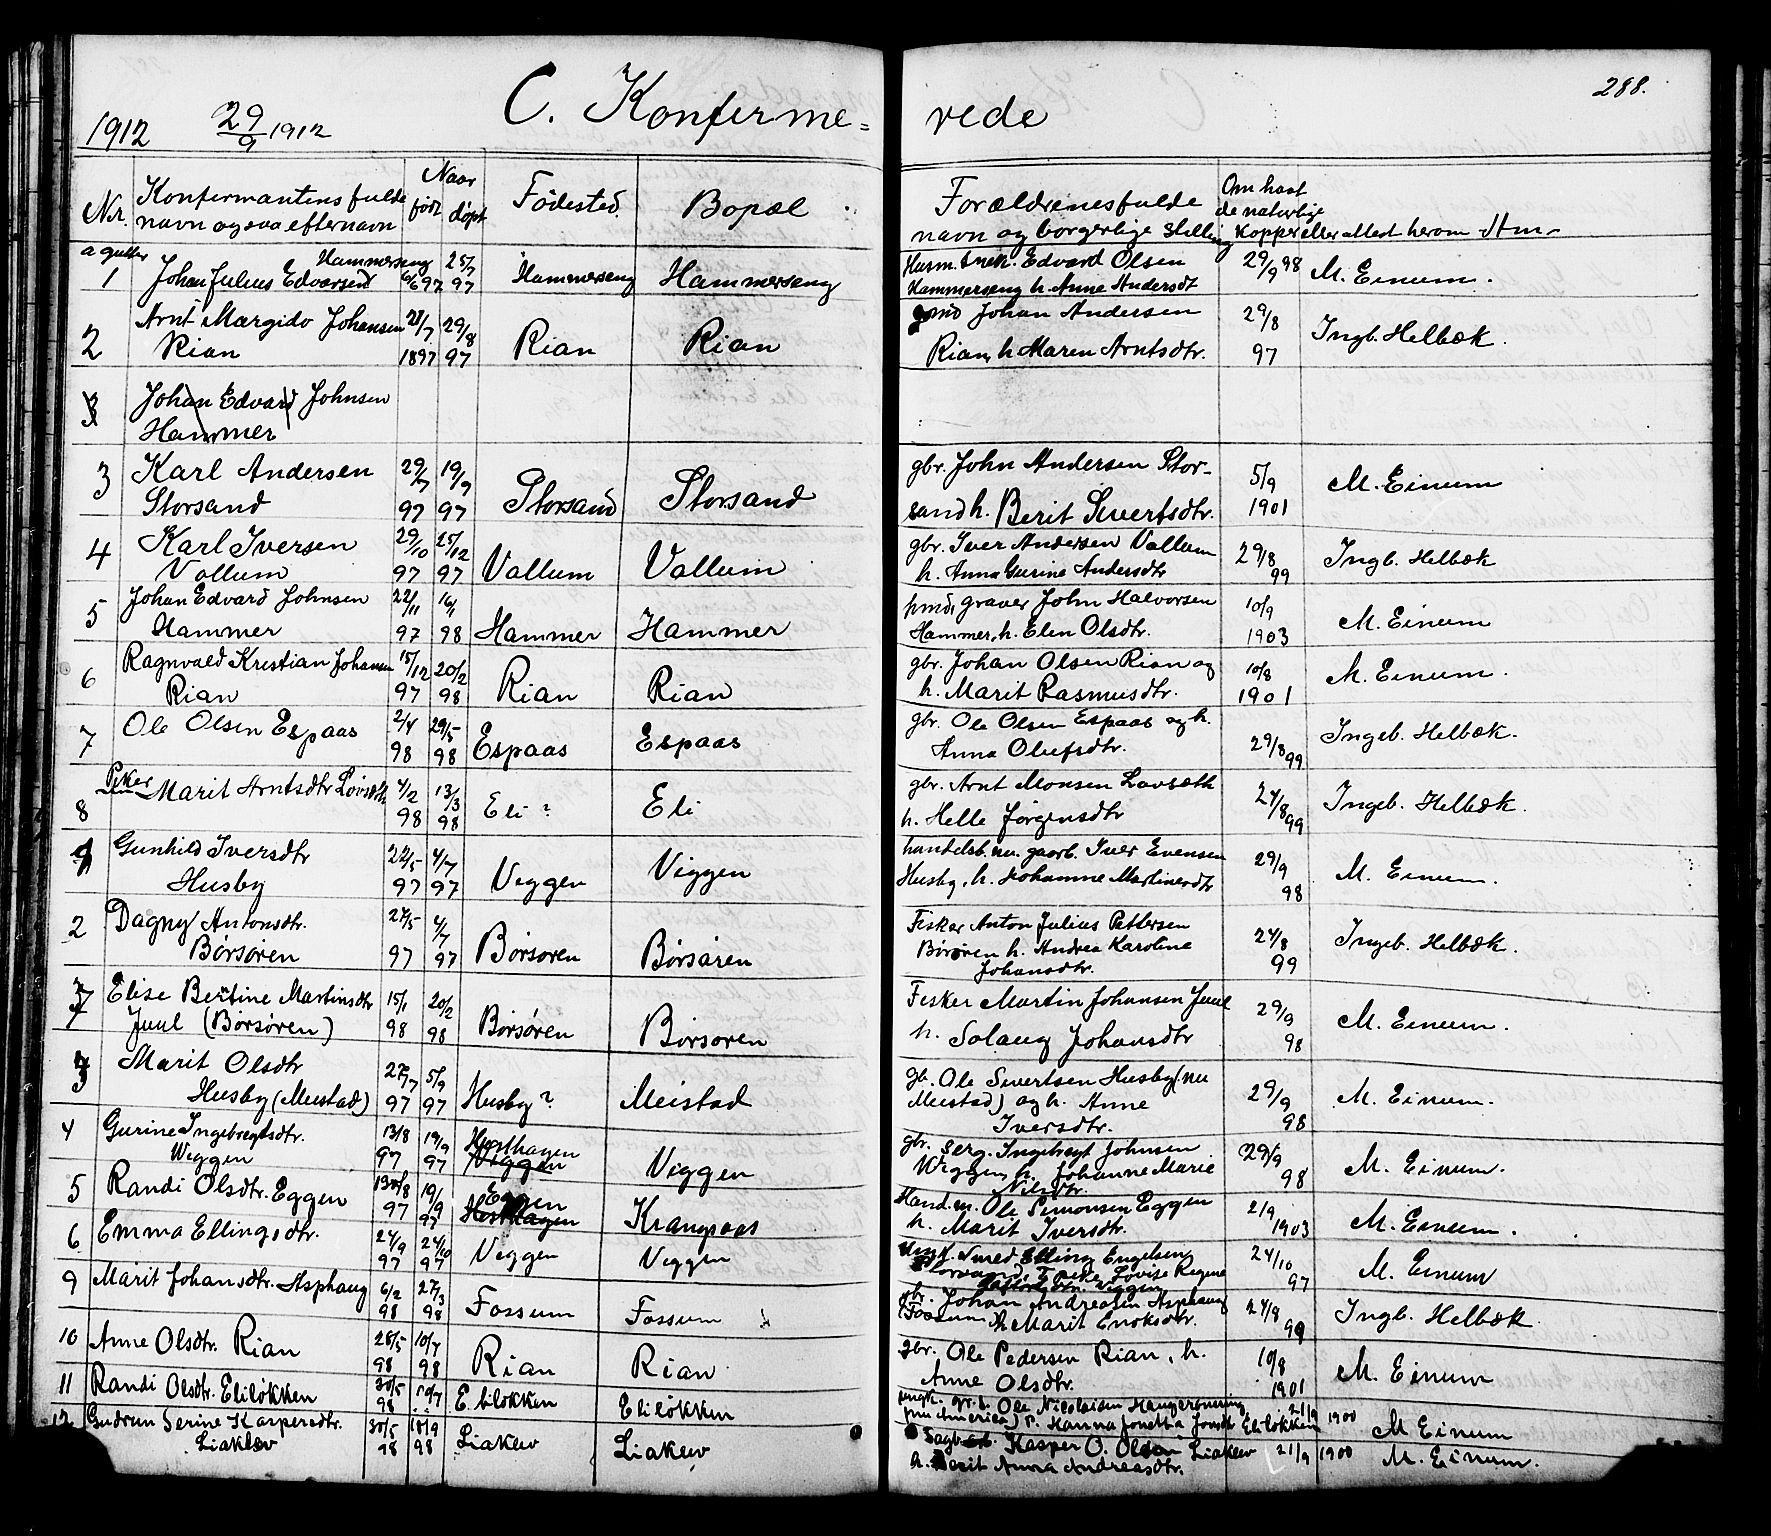 288.
1912 29/9 1912 C. Konferme= rede
Nr. Konfermantens fulde navn og saa efternavn Naar født døpt Fødested. Bopæl.
Forældrenes fulde navn og borgerlige stilling Om havt de naturlige Kopper eller attest herom Am-
a gutter
1 Johan Julius Edvarsen Hammerseng 6/6 97 25/7 97 Hammerseng Hammerseng
Husm. Snek. Edvard Olsen Hammerseng h. Anne Andersdt 29/9 98 M. Einum.
2 Arnt Margido Johansen Rian 28/7 1897 29/8 97 Rian Rian
Johan Andersen Rian, h. Maren Arntsdtr. 29/8 97 Ingb. Helbæk.
3 Johan Edvard Johnsen Hammer
3 Karl Andersen Storsand 29/7 97 19/9 97 Storsand Storsand
gbr. John Andersen Storsand h. Berit Sivertsdtr. 5/9 1901 M. Einum
4 Karl Iversen Vollum 29/10 97 25/12 97 Vollum Vollum
gbr. Iver Andersen Vollum h. Anna Gurine Andersdtr 29/8 99 Ingb. Helbæk
5 Johan Edvard Johnsen Hammer 22/11 97 16/1 98 Hammer Hammer
graver John Halvorsen Hammer, h. Elen Olsdtr. 10/9 1903 M. Einum
6 Ragnvald Kristian Johansen Rian 15/12 97 20/2 98 Rian Rian
gbr. Johan Olsen Rian og h. Marit Rasmusdtr. 10/8 1901 M. Einum.
7 Ole Olsen Espaas 2/4 98 29/5 98 Espaas Espaas
gbr. Ole Olsen Espaas og h. Anna Olufsdtr. 29/8 99 Ingeb. Helbæk.
Piker
8 Marit Arntsdtr Lovsæth 4/2 98 13/3 98 Eli? Eli
gbr. Arnt Monsen Lovsæth h. Helle Jørgensdtr 24/8 99 Ingeb. Helbæk.
1 Gunhild Iversdtr Husby 22/5 97 4/7 97 Viggen Viggen
handelsb. nu. gaarb. Iver Evensen Husby, h. Johanne Martinesdtr 29/9 98 M. Einum.
2 Dagny Antonsdtr. Børsøren 27/5 97 4/7 97 Børsøren Børsøren
Fisker Anton Julius Pettersen Børsøren h. Andrea Karoline Johansdtr. 24/8 99 Ingeb. Helbæk.
7 Elise Bertine Martinsdtr Juul (Børsøren) 15/1 98 20/2 98 Børsøren Børsøren
Fisker Martin Johansen Juul h. Solaug Johansdtr 29/9 98 M. Einum.
3 Marit Olsdtr Husby (Meistad) 27/7 97 5/9 97 Husby? Meistad
gb. Ole Sivertsen Husby (nu Meistad) og h. Anne Iversdtr. 29/9 98 M. Einum.
4 Gurine Ingebregtsdtr. Viggen 13/8 97 19/9 97 Hosthagen Viggen Viggen
gbr. serg. Ingebregt Johnsen Viggen, h. Johanne Marie Nilsdtr. 29/9 98 M. Einum.
5 Randi Olsdtr. Eggen 97 19/9 97 Eggen Hosthagen Krangsaas
Hand.m. Ole Simonsen Eggen h. Marit Iversdtr. 2/9 1903 M. Einum.
6 Emma Ellingsdtr. 24/9 97 24/10 97 Viggen Viggen
Smed Elling Engelsen Lovise Regine Viggen 24/10 97 M. Einum
9 Marit Johansdtr. Asphaug 6/2 98 27/3 98 Fossum Fossum
gbr. Johan Andreasen Asphaug (Fossum) h Marit Enoksdtr. 24/8 99 Ingb. Helbæk
10 Anne Olsdtr. Rian 28/5 98 10/7 98 Rian Rian
gbr. Ole Pedersen Rian, h. Anne Olsdtr. 10/8 1901 M. Einum
11 Randi Olsdtr. Eliløkken 30/5 98 10/7 98 Eliløkken Eliløkken
Ole Nicolaisen (nu i Amerika) p. Hanna Jonetta Jonsdtr Eliløkken 21/9 1900 M Einum
12 Gudrun Serine Kaspersdtr. Liaklev 30/5 98 18/9 98 Liaklev Liaklev
Kasper O. Olsen Liaklev h. Marit Anna Andreasdtr. 21/9 1900 M. Einum.